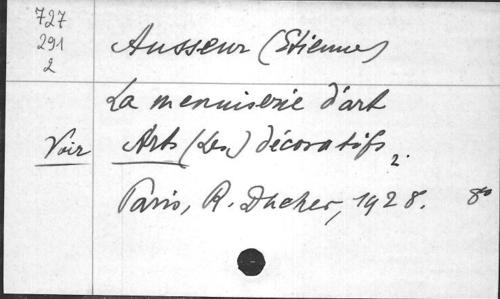 727
291
2
Ausseur (Etienne)
La menuiserie d'art
Voir Arts (Les) décoratifs, 2.
Paris, R. Ducher, 1928. 8°